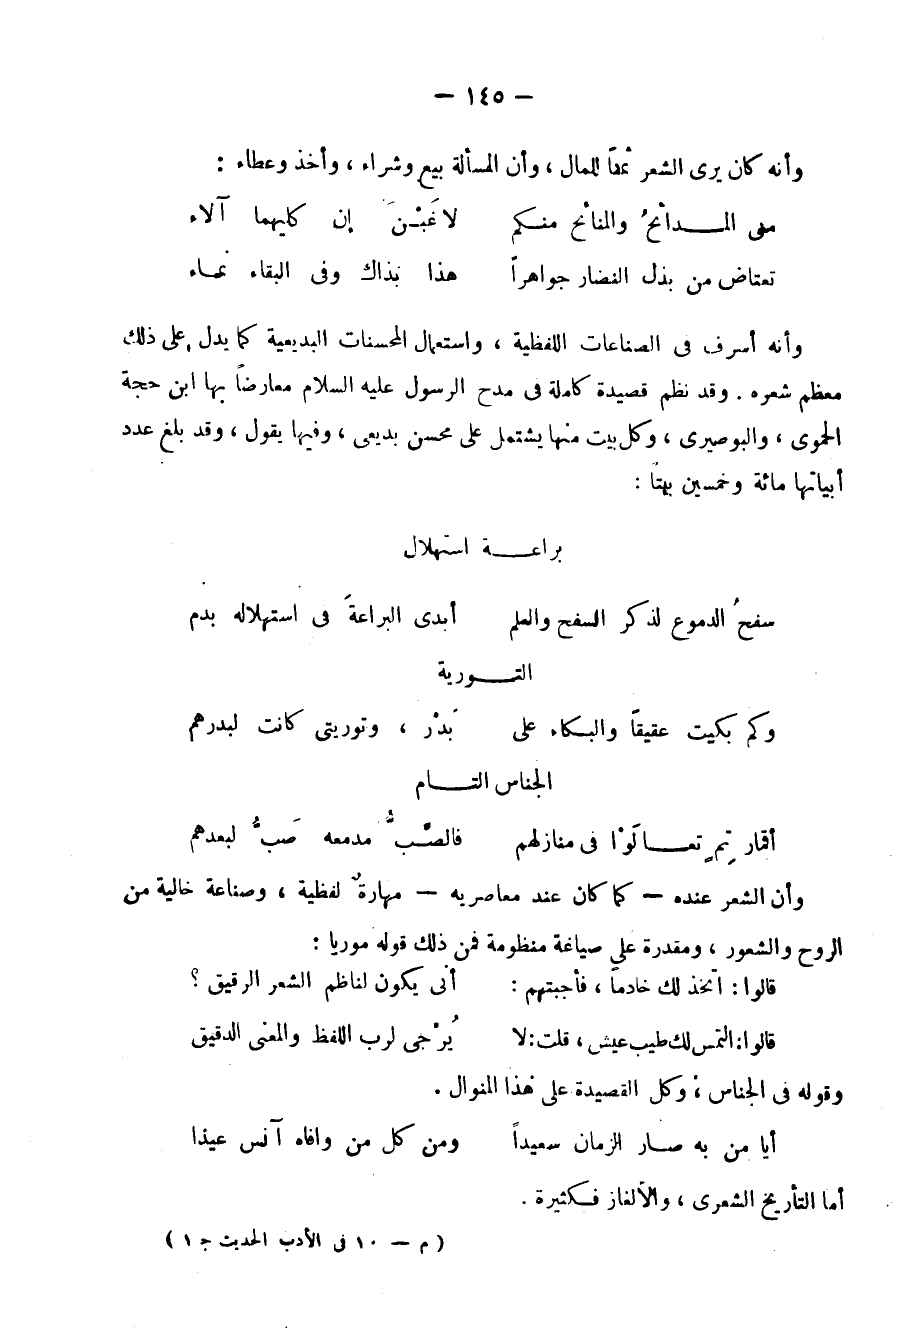 — ١٤٥ —
وأنه كان يرى الشعر ثمنًا للمال ، وأن المسألة بيع وشراء ، وأخذ وعطاء :
منى المـــدائحُ والمنائح منـكم لا غَبْـنَ إن كليهما آلاء
تعتاض من بذل النضار جواهراً هذا بذاك وفى البقاء نماء
وأنه أسرف فى الصناعات اللفظية ، واستعمال المحسنات البديعية كما يدل على ذلك
معظم شعره . وقد نظم قصيدة كاملة فى مدح الرسول عليه السلام معارضاً بها ابن حجة
الحموى ، والبوصيرى ، وكل بيت منها يشتمل على محسن بديعى ، وفيها يقول ، وقد بلغ عدد
أبياتها مائة وخمسين بيتًا :
براعـــة استهلال
سفحُ الدموع لذكر السفح والعلم أبدى البراعةَ فى استهلاله بدم
التـــورية
وكم بكيت عقيقًا والبـكاء على بَدْر ، وتوريتى كانت لبدرهم
الجناس التـــام
أقمار تِم تعـــالَوْا فى منازلهم فالصَّـبُّ مدمعه صَبُّ لبعدهم
وأن الشعر عنده — كما كان عند معاصريه — مهارةٌ لفظية ، وصناعة خالية من
الروح والشعور ، ومقدرة على صياغة منظومة فمن ذلك قوله موريا :
قالوا : اتخذ لك خادماً ، فأجبتهم : أنى يكون لناظم الشعر الرقيق ؟
قالوا : التمس لك طيب عيش ، قلت : لا يُرْجى لرب اللفظ والمعنى الدقيق
وقوله فى الجناس ، وكل القصيدة على هذا المنوال .
أيا من به صـار الزمان سعيداً ومن كل من وافاه آنس عيدا
أما التأريخ الشعرى ، والألغاز فـكثيرة .
( م — ١٠ فى الأدب الحديث ج ١ )